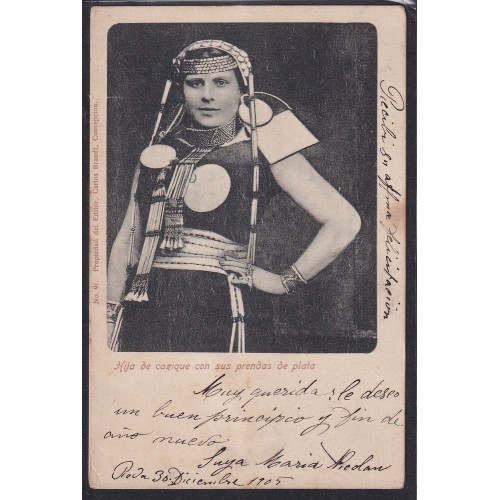 No. 9. Propiedad del Editor, Carlos Brandt, Concepcion.
Recibí su affma felicitacion
Hija de cazique con sus prendas de plata
Muy querida: le deseo
un buen principio y fin de
año nuevo
Suya Maria Nicolau
Roda 30 Diciembre 1905